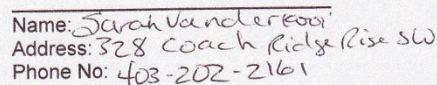 Name: Sarah Vanderkooi
Address: 328 Coach Ridge Rise SW
Phone No: 403-202-2161